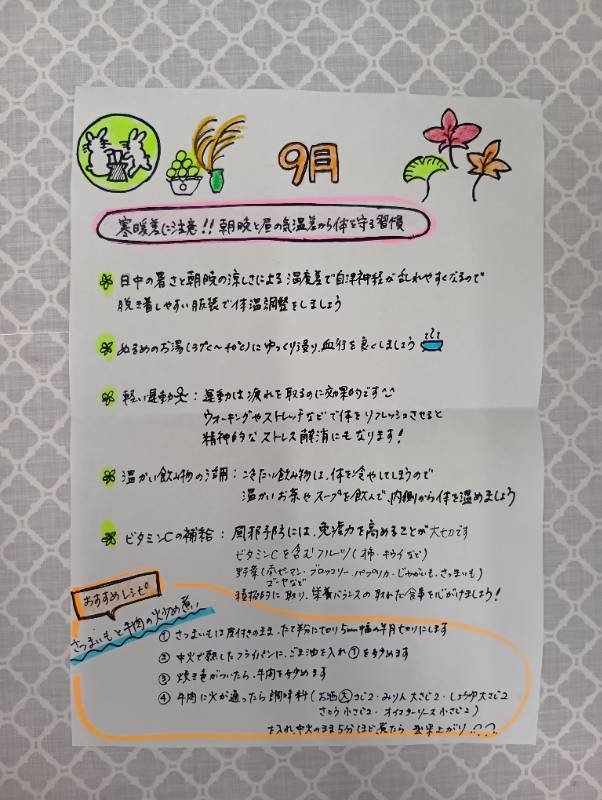 9月
寒暖差に注意!! 朝晩と昼の気温差から体を守る習慣
日中の暑さと朝晩の涼しさによる温度差で自律神経が乱れやすくなるので
脱ぎ着しやすい服装で体温調整をしましょう
ぬるめのお湯(37℃〜40℃)にゆっくり浸り、血行を良くしましょう
軽い運動:運動は疲れを取るのに効果的です
ウォーキングやストレッチなどで体をリフレッシュさせると
精神的なストレス解消にもなります!
温かい飲み物の活用:冷たい飲み物は、体を冷やしてしまうので
温かいお茶やスープを飲んで、内側から体を温めましょう
ビタミンCの補給:風邪予防には、免疫力を高めることが大切です
ビタミンCを含むフルーツ(柿・キウイなど)
野菜(赤ピーマン・ブロッコリー・パプリカ・じゃがいも・さつまいも)
ゴーヤなど
積極的に取り、栄養バランスの取れた食事を心がけましょう!
おすすめレシピ
さつまいもと牛肉の炒め煮
① さつまいもは皮付きのまま、たて半分に切り5mm幅の半月切りにします
② 中火で熱したフライパンに、ごま油を入れ①を炒めます
③ 焼き色がついたら、牛肉を炒めます
④ 牛肉に火が通ったら調味料(お酒大さじ2・みりん大さじ2・しょうゆ大さじ2
さとう小さじ2・オイスターソース小さじ2)
を入れ、中火のまま5分ほど煮たら出来上がり